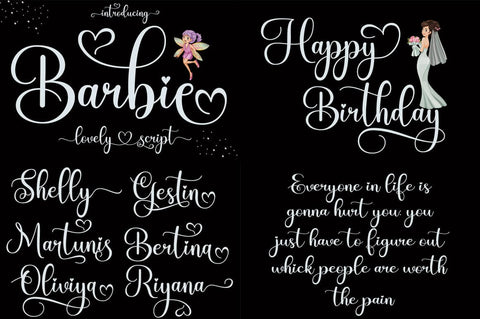 introducing
Barbie
lovely script
Happy
Birthday
Shelly Gestin
Martunis Bertina
Oliviya Riyana
Everyone in life is
gonna hurt you. you
just have to figure out
whick people are worth
the pain